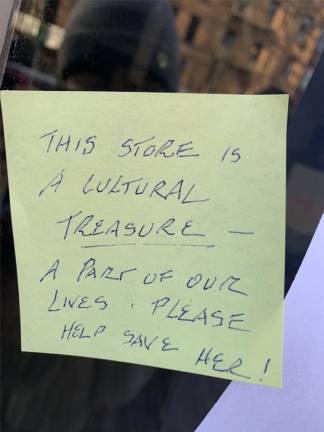 THIS STORE IS
A CULTURAL
TREASURE —
A PART OF OUR
LIVES. PLEASE
HELP SAVE HER!